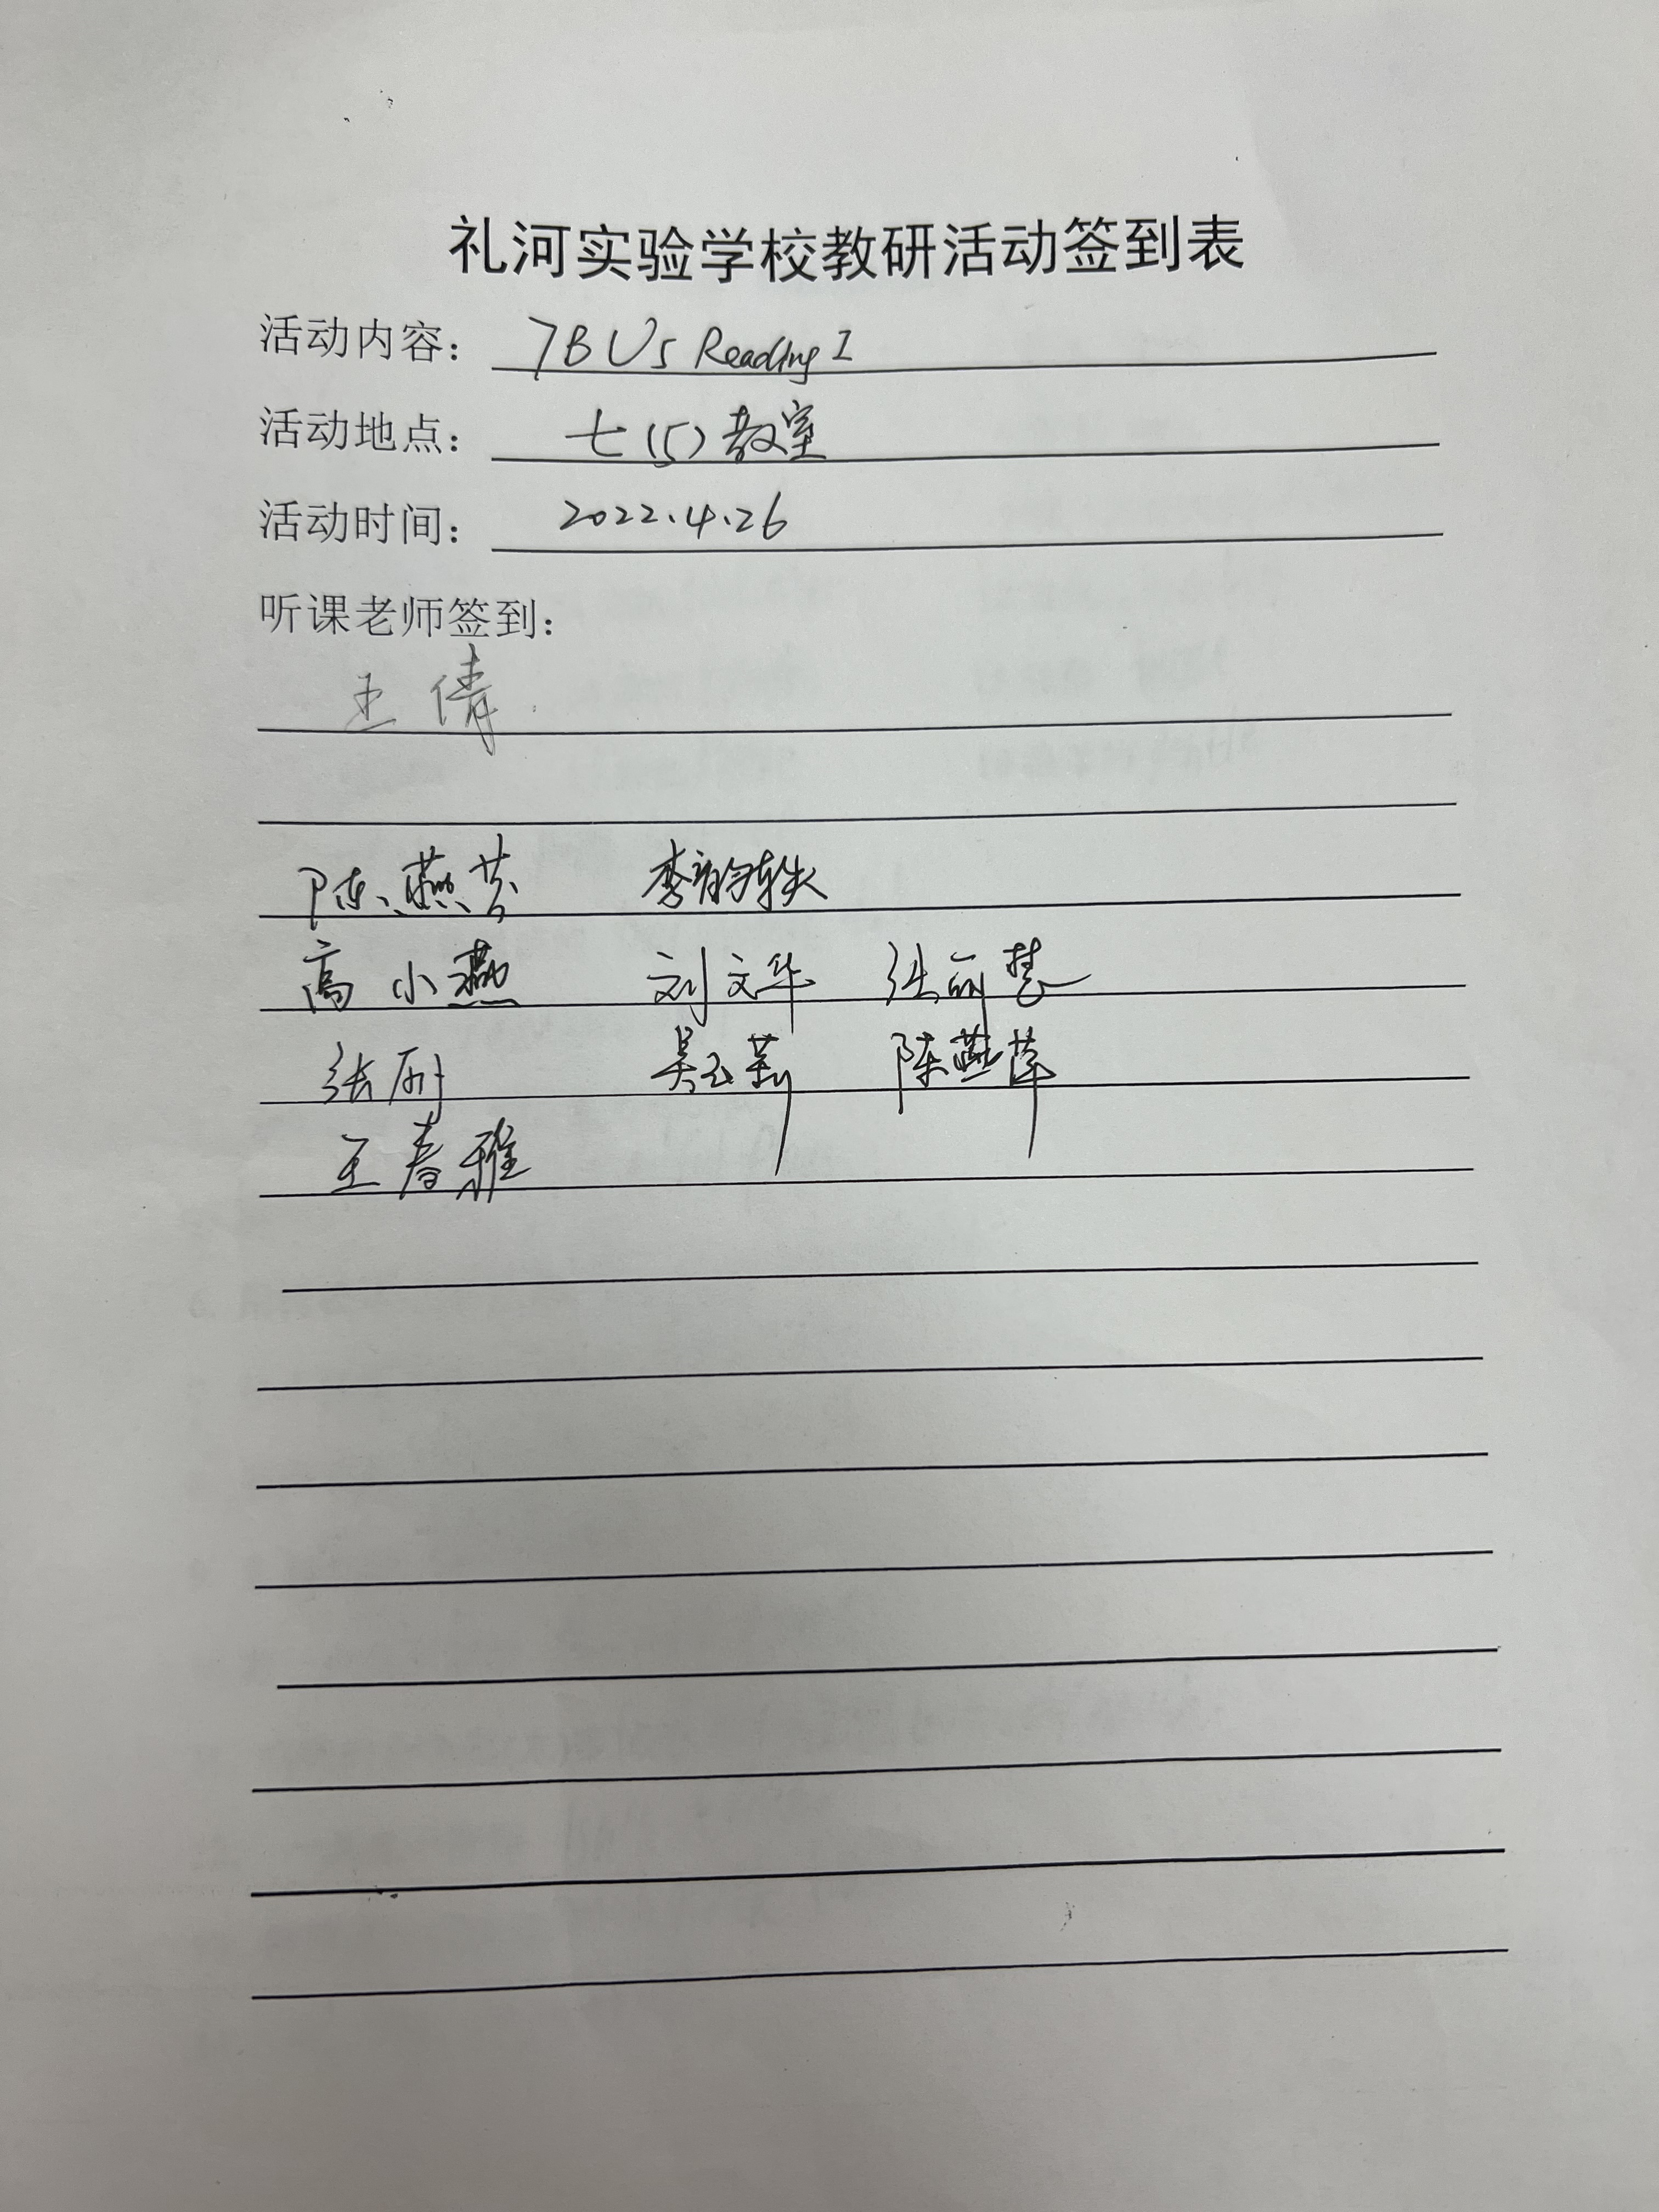 礼河实验学校教研活动签到表
活动内容：7B U5 Reading I
活动地点：七(5)教室
活动时间：2022.4.26
听课老师签到：
王倩
陈燕芸
高小燕 刘文华 张丽慧
张丽 吴云莉 陈燕萍
王春雅